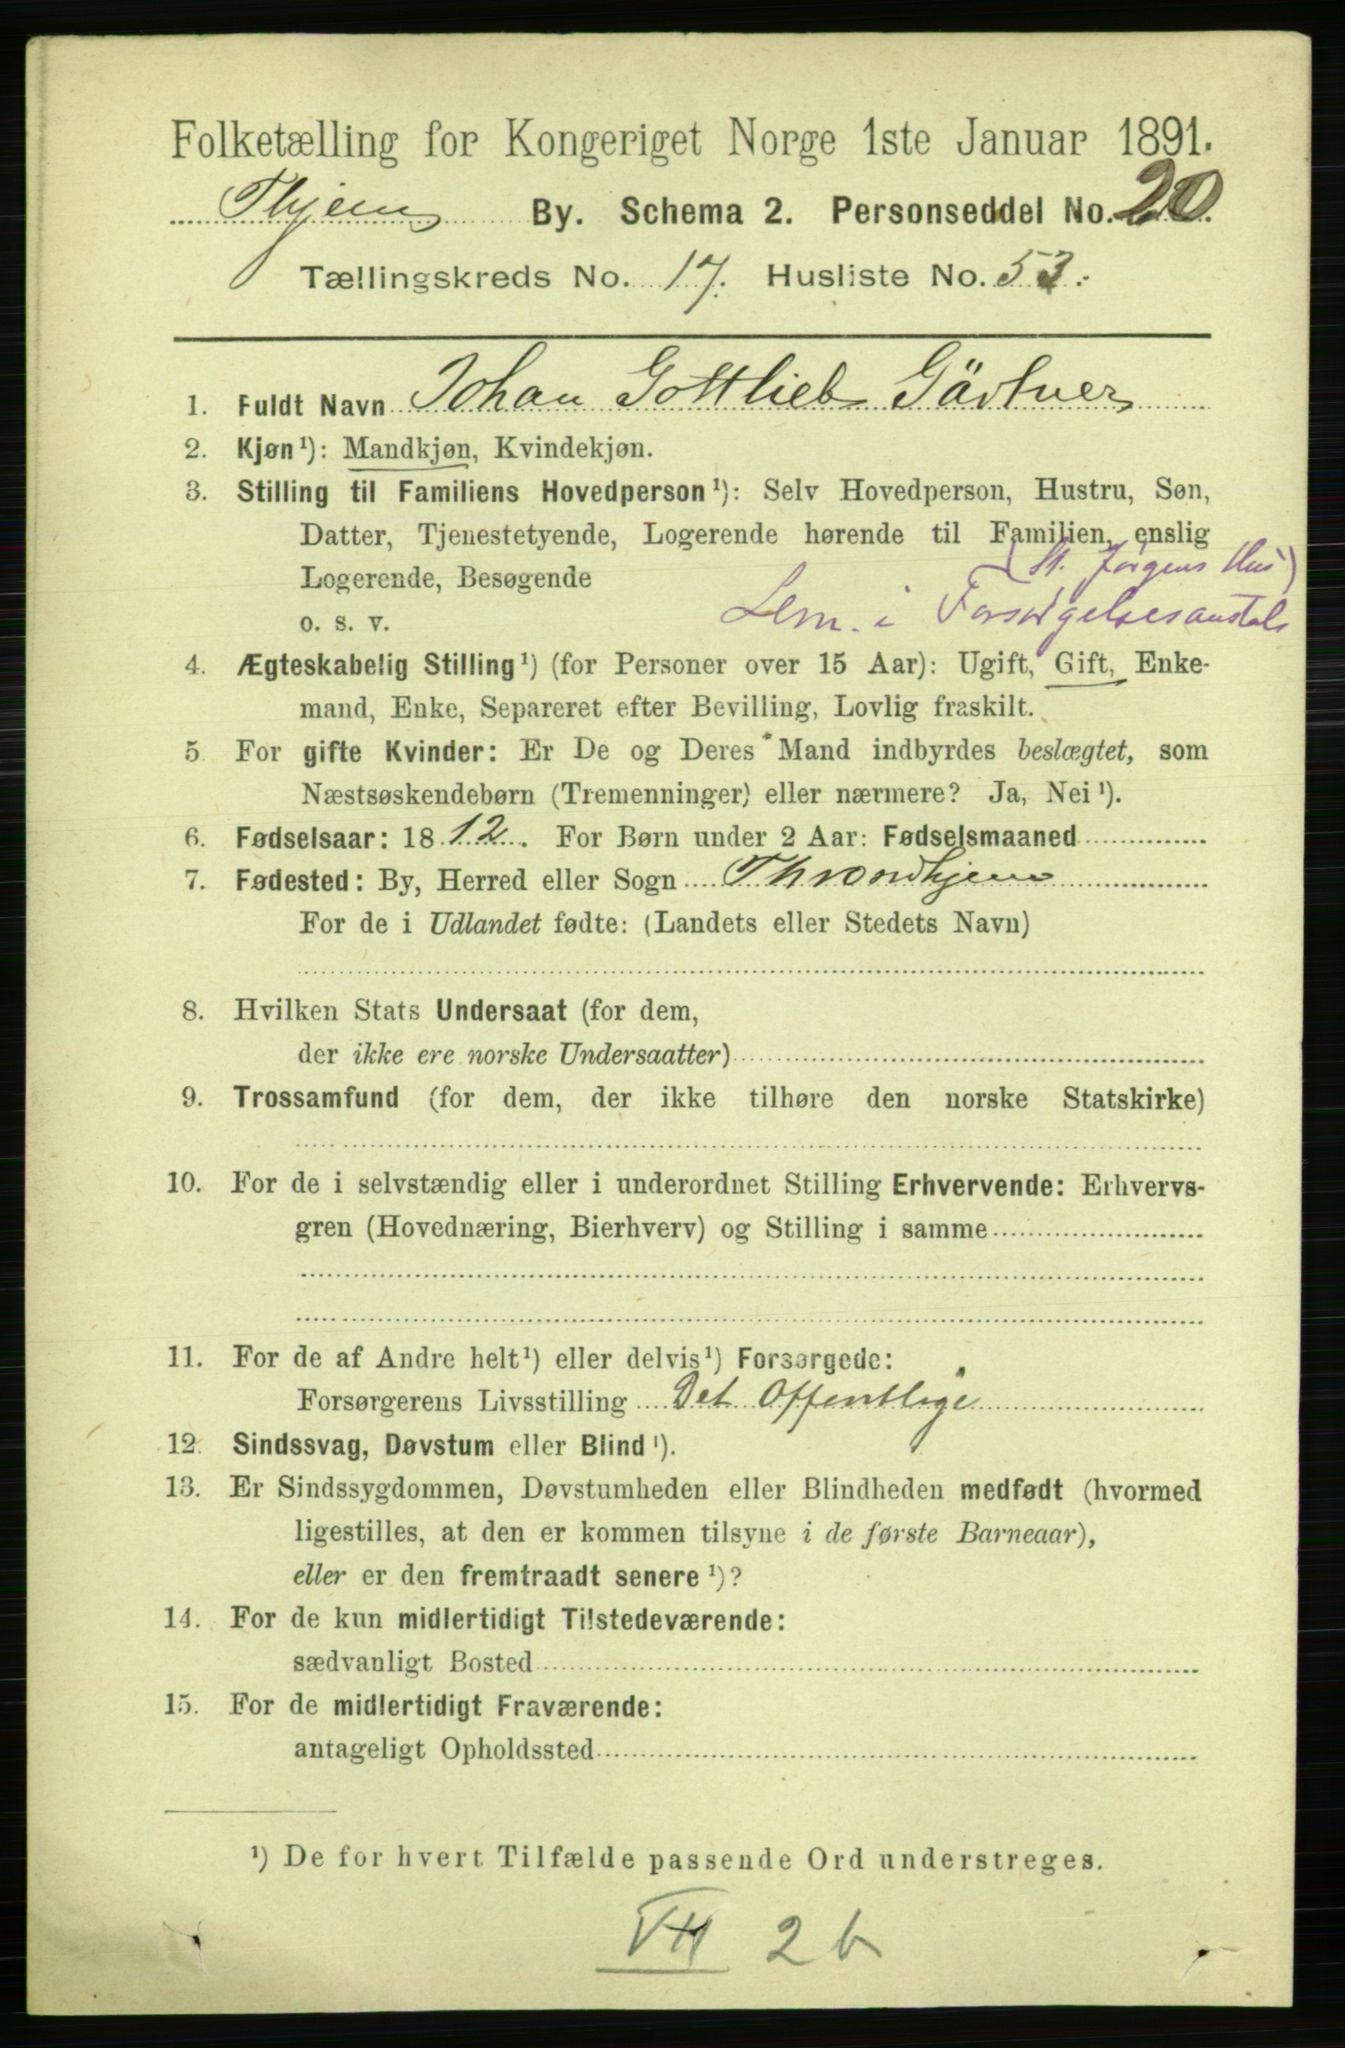 Folketælling for Kongeriget Norge 1ste Januar 1891.
Thjem By. Schema 2. Personseddel No. 20.
Tællingskreds No. 17. Husliste No. 53.
1. Fuldt Navn Johan Gottlieb Gärtner
2. Kjøn¹): Mandkjøn, Kvindekjøn.
3. Stilling til Familiens Hovedperson¹): Selv Hovedperson, Hustru, Søn,
Datter, Tjenestetyende, Logerende hørende til Familien, enslig
Logerende, Besøgende (St. Jørgens Hus)
o. s. v. Lem i Forsørgelsesanstalt
4. Ægteskabelig Stilling¹) (for Personer over 15 Aar): Ugift, Gift, Enke-
mand, Enke, Separeret efter Bevilling, Lovlig fraskilt.
5 For gifte Kvinder: Er De og Deres Mand indbyrdes beslægtet, som
Næstsøskendebørn (Tremenninger) eller nærmere? Ja, Nei¹).
6. Fødselsaar: 1812. For Børn under 2 Aar: Fødselsmaaned
7. Fødested: By, Herred eller Sogn Throndhjem
For de i Udlandet fødte: (Landets eller Stedets Navn)
8. Hvilken Stats Undersaat (for dem,
der ikke ere norske Undersaatter)
9. Trossamfund (for dem, der ikke tilhøre den norske Statskirke)
10. For de i selvstændig eller i underordnet Stilling Erhvervende: Erhvervs-
gren (Hovednæring, Bierhverv) og Stilling i samme
11. For de af Andre helt¹) eller delvis¹) Forsørgede:
Forsørgerens Livsstilling Det Offentlige
12. Sindssvag, Døvstum eller Blind¹).
13. Er Sindssygdommen, Døvstumheden eller Blindheden medfødt (hvormed
ligestilles, at den er kommen tilsyne i de første Barneaar),
eller er den fremtraadt senere¹)?
14. For de kun midlertidigt Tilstedeværende:
sædvanligt Bosted
15. For de midlertidigt Fraværende:
antageligt Opholdssted
¹) De for hvert Tilfælde passende Ord understreges.
VII 2 b